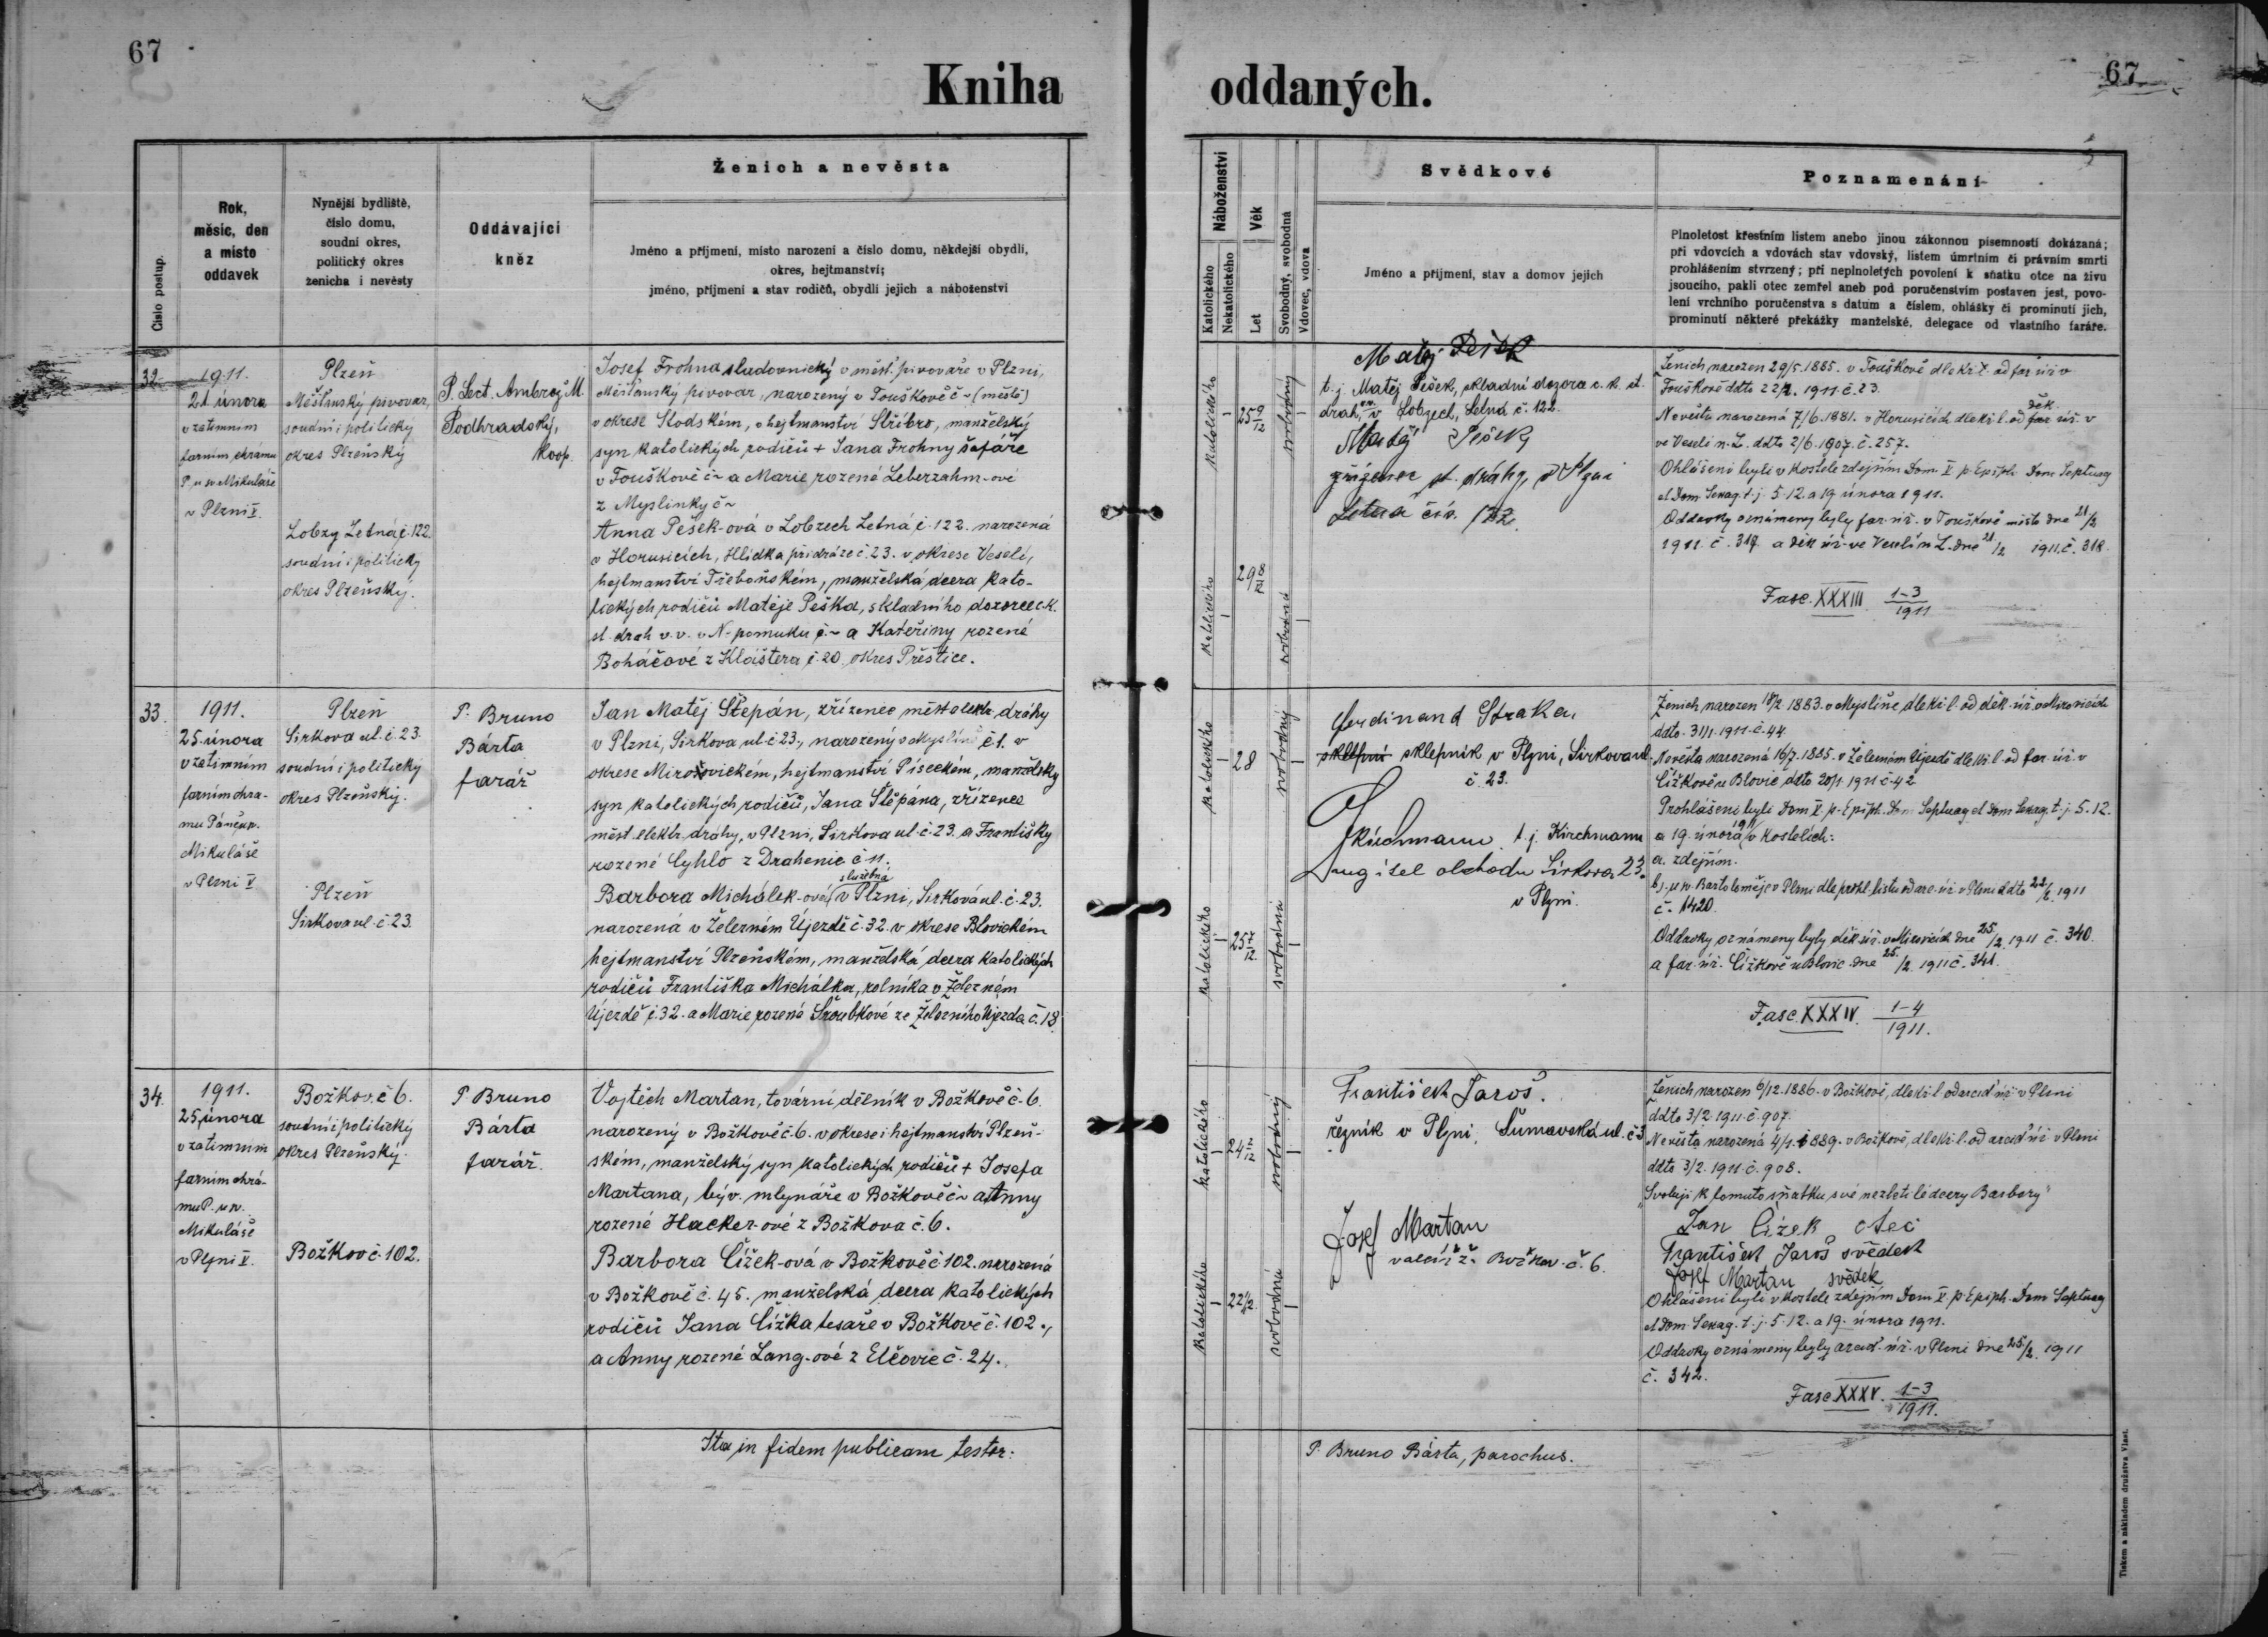 67
Kniha
oddaných.
67
Číslo postup.
Rok,
měsíc, den
a místo
oddavek
Nynější bydliště,
číslo domu,
soudní okres,
politický okres
ženicha i nevěsty
Oddávající
kněz
Ženich a nevěsta
Jméno a příjmení, místo narození a číslo domu, někdejší obydlí,
okres, hejtmanství;
jméno, příjmení a stav rodičů, obydlí jejich a náboženství
Náboženství
Katolického
Nekatolického
Věk
Let
Svobodný, svobodná
Vdovec, vdova
Svědkové
Jméno a příjmení, stav a domov jejich
Poznamenání
Plnoletost křestním listem anebo jinou zákonnou písemností dokázaná;
při vdovcích a vdovách stav vdovský, listem úmrtním či právním smrti
prohlášením stvrzený; při neplnoletých povolení k sňatku otce na živu
jsoucího, pakli otec zemřel aneb pod poručenstvím postaven jest, povo-
lení vrchního poručenstva s datum a číslem, ohlášky či prominutí jich,
prominutí některé překážky manželské, delegace od vlastního faráře.
32.
1911.
21 února
v zatimním
farním chrámu
P. u sv. Mikuláše
v Plzni V.
Plzeň
Měšťanský pivovar,
soudní i politický
okres Plzeňský
Lobzy Letná č. 122.
soudní i politický
okres Plzeňský.
P. Lect. Ambrož M.
Podhradský,
koop.
Josef Frohna sladovnický v měšť. pivovaře v Plzni,
Měšťanský pivovar, narozený v Touškově č ~ (městě)
v okrese Stodském, v hejtmanství Stříbro, manželský
syn katolických rodičů + Jana Frohny šafáře
v Touškově č ~ a Marie rozené Leberzahm-ové
z Myslinky č ~
Anna Pešek-ová v Lobzech Letná č. 122. narozená
v Horusicích, Hlídka při dráze č. 23. v okrese Veselí,
hejtmanství Třeboňském, manželská dcera kato-
lických rodičů Matěje Peška, skladního dozorce c. k.
st. drah v. v. v N-pomuku č. ~ a Kateřiny rozené
Boháčové z Kláštera č. 20. okres Přeštice.
katolického
25 9/12
svobodný
katolického
29 8/12
svobodná
Matěj Pešek
t. j. Matěj Pešek, skladní dozorce c. k. st.
drah, v Lobzech, Letná č. 122.
Matěj Pešek
zřízenec st. dráhy, v Plzni
Letná čís. 122.
Ženich narozen 29/5. 1885. v Touškově dle kř. l. od far. úř. v
Touškově ddto 22/1. 1911. č. 23.
Nevěsta narozená 7/6. 1881. v Horusicích dle kř. l. od děk. far. úř. v
ve Veselí n. L. ddto 2/6. 1907. č. 257.
Ohlášeni byli v kostele zdejším Dom. V. p. Epiph. Dom. Septuag
et Dom. Sexag. t. j. 5. 12. a 19 února 1911.
Oddavky oznámeny byly far. úř. v Touškově městě dne 21/2
1911. č. 317. a děk. úř. ve Veselí n. L. dne 21/2 1911. č. 318.
Fasc. XXXIII 1-3/1911
33.
1911.
25. února
v zatimním
farním chrá-
mu Páně u sv.
Mikuláše
v Plzni V.
Plzeň
Sirkova ul. č. 23.
soudní i politický
okres Plzeňský.
Plzeň
Sirkova ul. č. 23.
P. Bruno
Bárta
farář
Jan Matěj Štěpán, zřízenec měst. elektr. dráhy
v Plzni, Sirkova ul. č 23., narozený v Myslíně č 1. v
okrese Mirovickém, hejtmanství Píseckém, manželský
syn katolických rodičů, Jana Štěpána, zřízence
měst. elektr. dráhy, v Plzni, Sirkova ul. č. 23. a Františky
rozené Cyhlo z Drahenic č 11.
Barbora Michálek-ová, služebná v Plzni, Sirkova ul. č. 23.
narozená v Železném Újezdě č. 32. v okrese Blovickém
hejtmanství Plzeňském, manželská dcera katolických
rodičů Františka Michálka, rolníka v Železném
Újezdě č 32. a Marie rozené Šroubkové ze Železného Újezda č. 18.
katolického
28
svobodný
katolického
25 7/12
svobodná
Ferdinand Straka,
sklepník v Plzni, Sirkova ul.
č. 23.
Kirchmann t. j. Kirchmann
obchodu Sirkova 23.
v Plzni.
Ženich narozen 18/2. 1883. v Myslíně, dle kř. l. od děk. úř. v Mirovicích
ddto. 31/1. 1911. č. 44
Nevěsta narozená 16/7. 1885. v Železném Újezdě dle kř. l. od far. úř. v
Čížkově u Blovic ddto 20/1. 1911 č. 42
Prohlášeni byli Dom. V. p. Epiph. Dom. Septuag. et Dom. Sexag. t. j. 5. 12.
a 19. února 1911 v kostelích:
a. zdejším.
b). u sv. Bartoloměje v Plzni dle prohl. listu od arc. úř. v Plzni ddto 22/2. 1911
č. 1420.
Oddavky oznámeny byly děk. úř. v Mirovicích dne 25/2. 1911 č. 340.
a far. úř. Čížkově u Blovic dne 25./2. 1911 č. 341.
Fasc. XXXIV. 1-4/1911.
34.
1911.
25. února
v zatimním
farním chrá-
mu P. u sv.
Mikuláše
v Plzni V.
Božkov č 6.
soudní i politický
okres Plzeňský.
Božkov č. 102.
P. Bruno
Bárta
farář.
Vojtěch Martan, tovární dělník v Božkově č. 6.
narozený v Božkově č. 6. v okrese i hejtmanství Plzeň-
ském, manželský syn katolických rodičů + Josefa
Martana, býv. mlynáře v Božkově č ~ a Anny
rozené Hacker-ové z Božkova č. 6.
Barbora Čížek-ová v Božkově č. 102. narozená
v Božkově č. 45. manželská dcera katolických
rodičů Jana Čížka tesaře v Božkově č. 102.,
a Anny rozené Lang-ové z Elčovic č. 24.
katolického
24 2/12
svobodný
katolického
22 1/12.
svobodná
František Jaroš.
řezník v Plzni, Šumavská ul. č 3
Josef Martan
Božkov. č. 6.
Ženich narozen 6/12. 1886. v Božkově, dle kř. l. od arcid. úř. v Plzni
ddto 3/2. 1911. č. 907.
Nevěsta narozená 4/1. 1889. v Božkově, dle kř. l. od arcid. úř. v Plzni
ddto 3/2. 1911. č. 908.
"Svoluji k tomuto sňatku své nezletilé dcery Barbory"
Jan Čížek otec
František Jaroš svědek
Josef Martan svědek
Ohlášeni byli v kostele zdejším Dom. V. p. Epiph. Dom. Septuag
et Dom. Sexag. t. j. 5. 12. a 19. února 1911.
Oddavky oznámeny byly arcid. úř. v Plzni dne 25/2. 1911
č. 342.
Fasc. XXXV. 1-3/1911.
Ita in fidem publicam testor:
P. Bruno Bárta, parochus.
Tiskem a nákladem družstva Vlast.